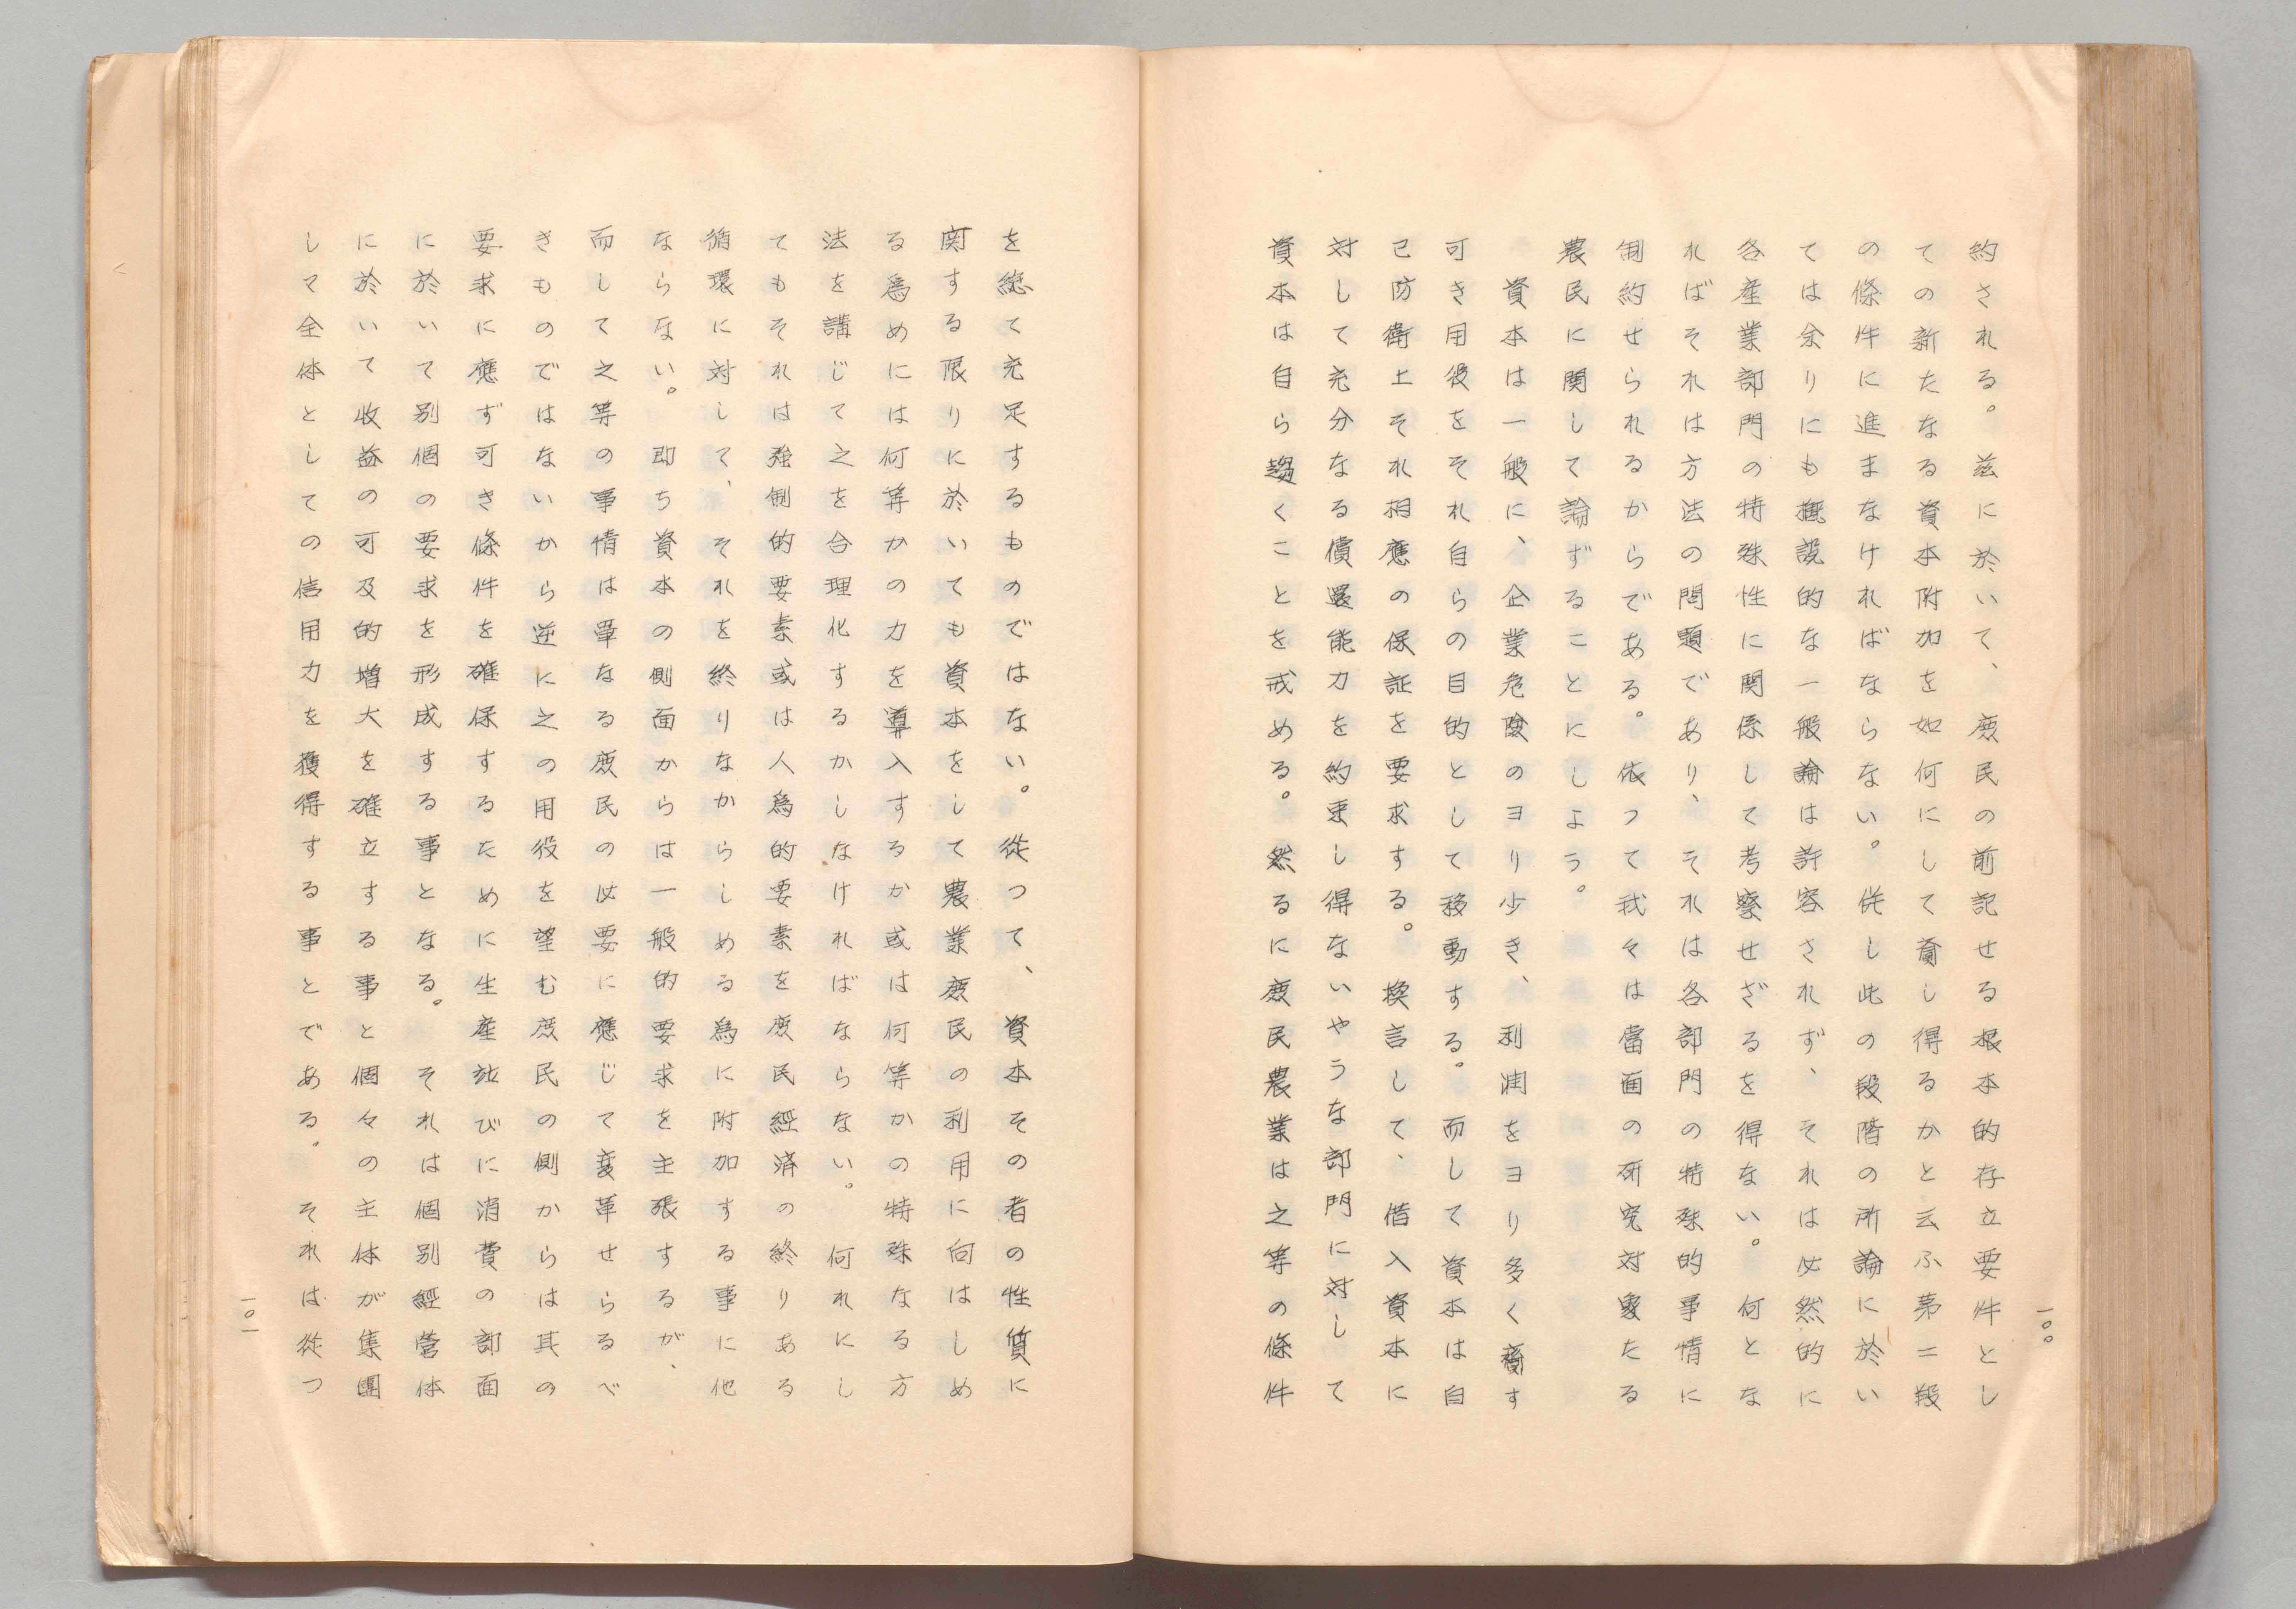 約される。茲に於いて、庶民の前記せる根本的存立要件とし
ての新たなる資本附加を如何にして賚し得るかと云ふ第二段
の條件に進まなければならない。併し此の段階の所論に於い
ては余りにも概説的な一般論は許容されず、それは必然的に
各産業部門の特殊性に関係して考察せざるを得ない。何とな
ればそれは方法の問題であり、それは各部門の特殊的事情に
制約せられるからである。依つて我々は當面の研究対象たる
農民に関して論ずることにしよう。
資本は一般に、企業危険のヨリ少き、利潤をヨリ多く齎す
可き用役をそれ自らの目的として移動する。而して資本は自
己防衛上それ相應の保証を要求する。換言して、借入資本に
対して充分なる償還能力を約束し得ないやうな部門に対して
資本は自ら趨くことを戒める。然るに庶民農業は之等の條件
一〇〇
を総て充足するものではない。従つて、資本その者の性質に
関する限りに於いても資本をして農業庶民の利用に向はしめ
る為めには何等かの力を導入するか或は何等かの特殊なる方
法を講じて之を合理化するかしなければならない。何れにし
てもそれは強制的要素或は人為的要素を庶民經済の終りある
循環に対して、それを終りなからしめる為に附加する事に他
ならない。即ち資本の側面からは一般的要求を主張するが、
而して之等の事情は單なる庶民の必要に應じて変革せらるべ
きものではないから逆に之の用役を望む庶民の側からは其の
要求に應ず可き條件を確保するために生産竝びに消費の部面
に於いて別個の要求を形成する事となる。それは個別經営体
に於いて收益の可及的増大を確立する事と個々の主体が集團
しマ全体としての信用力を獲得する事とである。それは従つ
一〇一